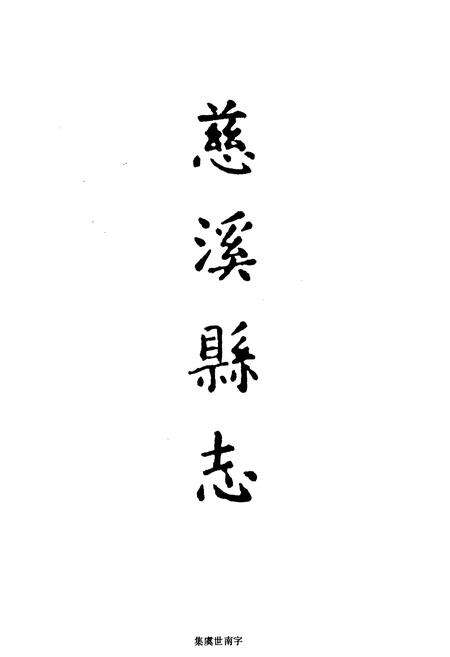 慈溪縣志
集虞世南字